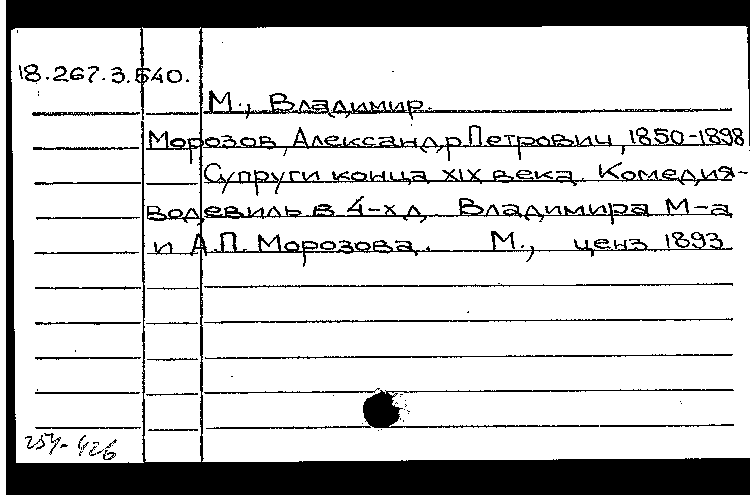 18.267.3.540.
М., Владимир.
Морозов, Александр Петрович, 1850-1898
Супруги конца XIX века. Комедия-
водевиль в 4-х д. Владимира М-а
и А.П. Морозова. М., ценз 1893
254-426